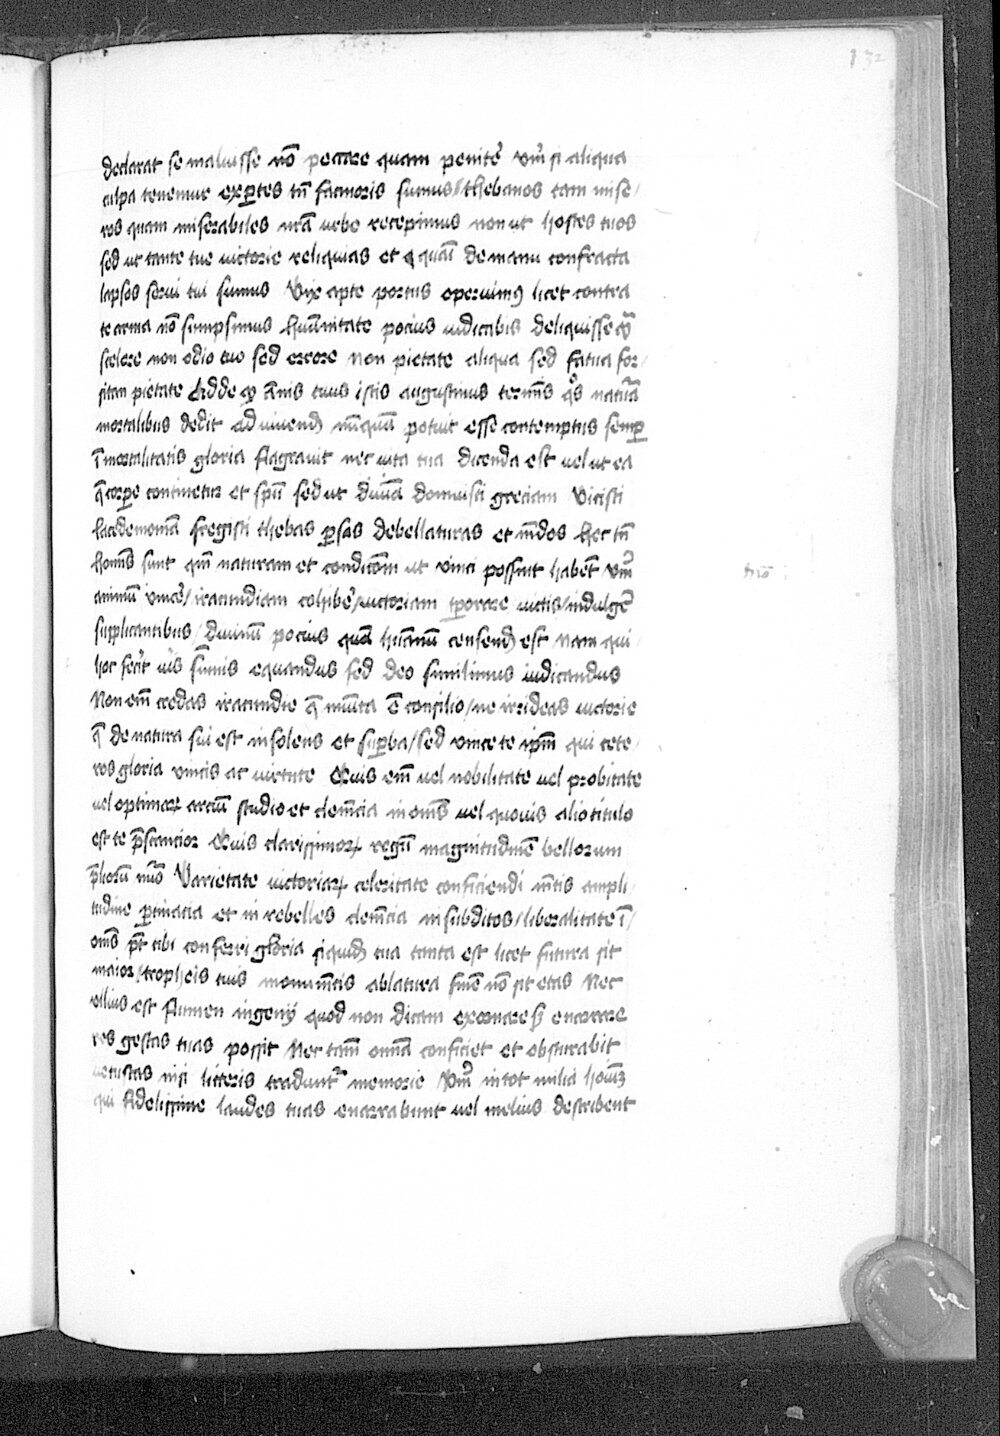 132
declarat se maluisse nō peccare quam penitē vm̄ si aliqua
culpa tenemur exꝑtes tn̄ facinoris sumus / thebanos tam mise/
ros quam miserabiles nr̄a urbe recepimus non ut hostes tuos
sed ut tante tue victorie reliquias et quāi de manu confracta
lapsos servi tui sumus Vix apte portus operuimꝰ licet contra
te arma nō sumpsimus humītate pocius iudicabis deliquisse qꝫ
scelere non odio tuo sed errore non pietate aliqua sed fatua for/
sitan pietate Adde qꝫ aīmis tuus istis augustinus termīs qͦs natura
mortalibus dedit ad viuendū nūquā potuit esse contemptus semꝑ
īmortalitatis gloria flagravit nec vita tua dicenda est vel ut ea
q̄ corꝑe continetur et spū sed ut diuīa domuisti greciam Vicisti
lacedemoniā fregisti thebas ꝑsas debellaturas et mēdos hec tn̄
homīs sunt qm̄ naturam et condicōm ut vinci possint habēt Vm̄
animū vincē / iracundiam cohibē / victoriam tꝑorare victis / indulgē
supplicantibus / diuinū pocius quā humanū censendū est Nam qui
hoc fecit uis sūmis equandus sed deo simillimus iudicandus
Non em̄ credas iracundie q̄ inimīta ē consilio / ne irrideas victorie
q̄ de natura sui est insolens et suꝑba / sed vince te ipm̄ qui cete/
ros gloria vincis ac virtute Quis em̄ vel nobilitate vel probitate
vel optimaꝝ arciū studio et clemēcia in omīs vel quovis alio titulo
est te p̄stancior Quis clarissimoꝝ regū magnitudinē bellorum
p̄lioꝝ nūo Varietate victoriaꝝ celeritate conficiendi mētis ampli/
tudine ꝑtinacia et in rebelles clemēcia in subditos / liberalitate ī /
omīs pt̄ tibi conferri gloria siquidē tua tanta est licet futura sit
maior / tropheis tuis monumētis ablatura finē nō sit etas Nec
ullius est flumen ingenij quod non dicam exornare sꝫ enarrare
res gestas tuas possit Nec tam̄ omīa conficiet et obscurabit
vetustas nisi litteris tradantᷣ memorie Vm̄ in tot milia hoīm
qui fidelissime laudes tuas enarrabunt vel melius describent